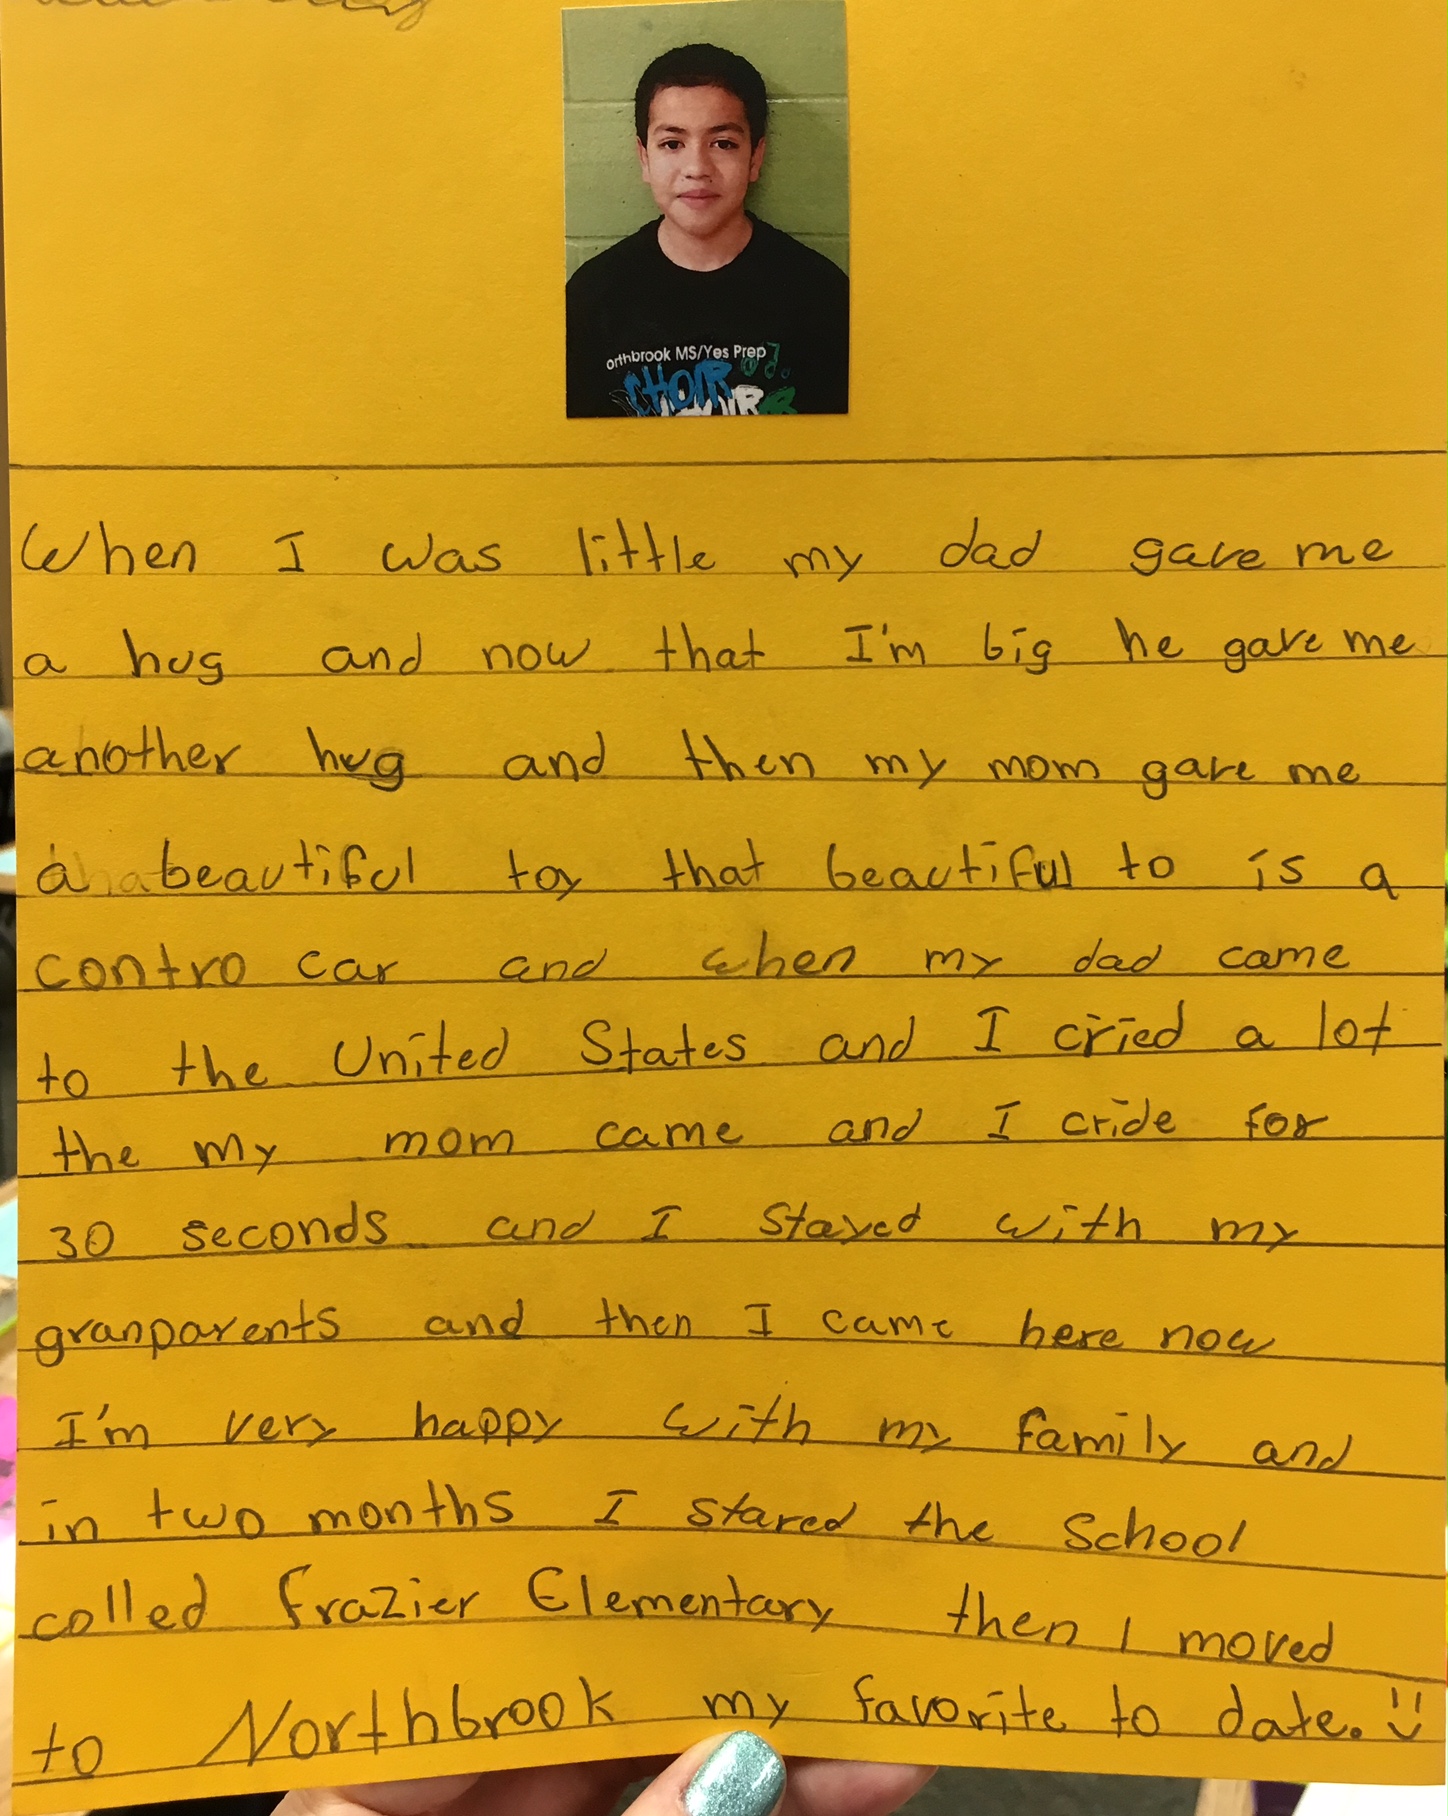 orthbrook MS/Yes Prep
CHOIR
When I was little my dad gave me
a hug and now that I'm big he gave me
another hug and then my mom gave me
a beautiful toy that beautiful to is a
contro car and when my dad came
to the United States and I cried a lot
the my mom came and I cride for
30 seconds and I stayed with my
granparents and then I came here now
I'm very happy with my family and
in two months I stared the School
called frazier Elementary then I moved
to Northbrook my favorite to date.